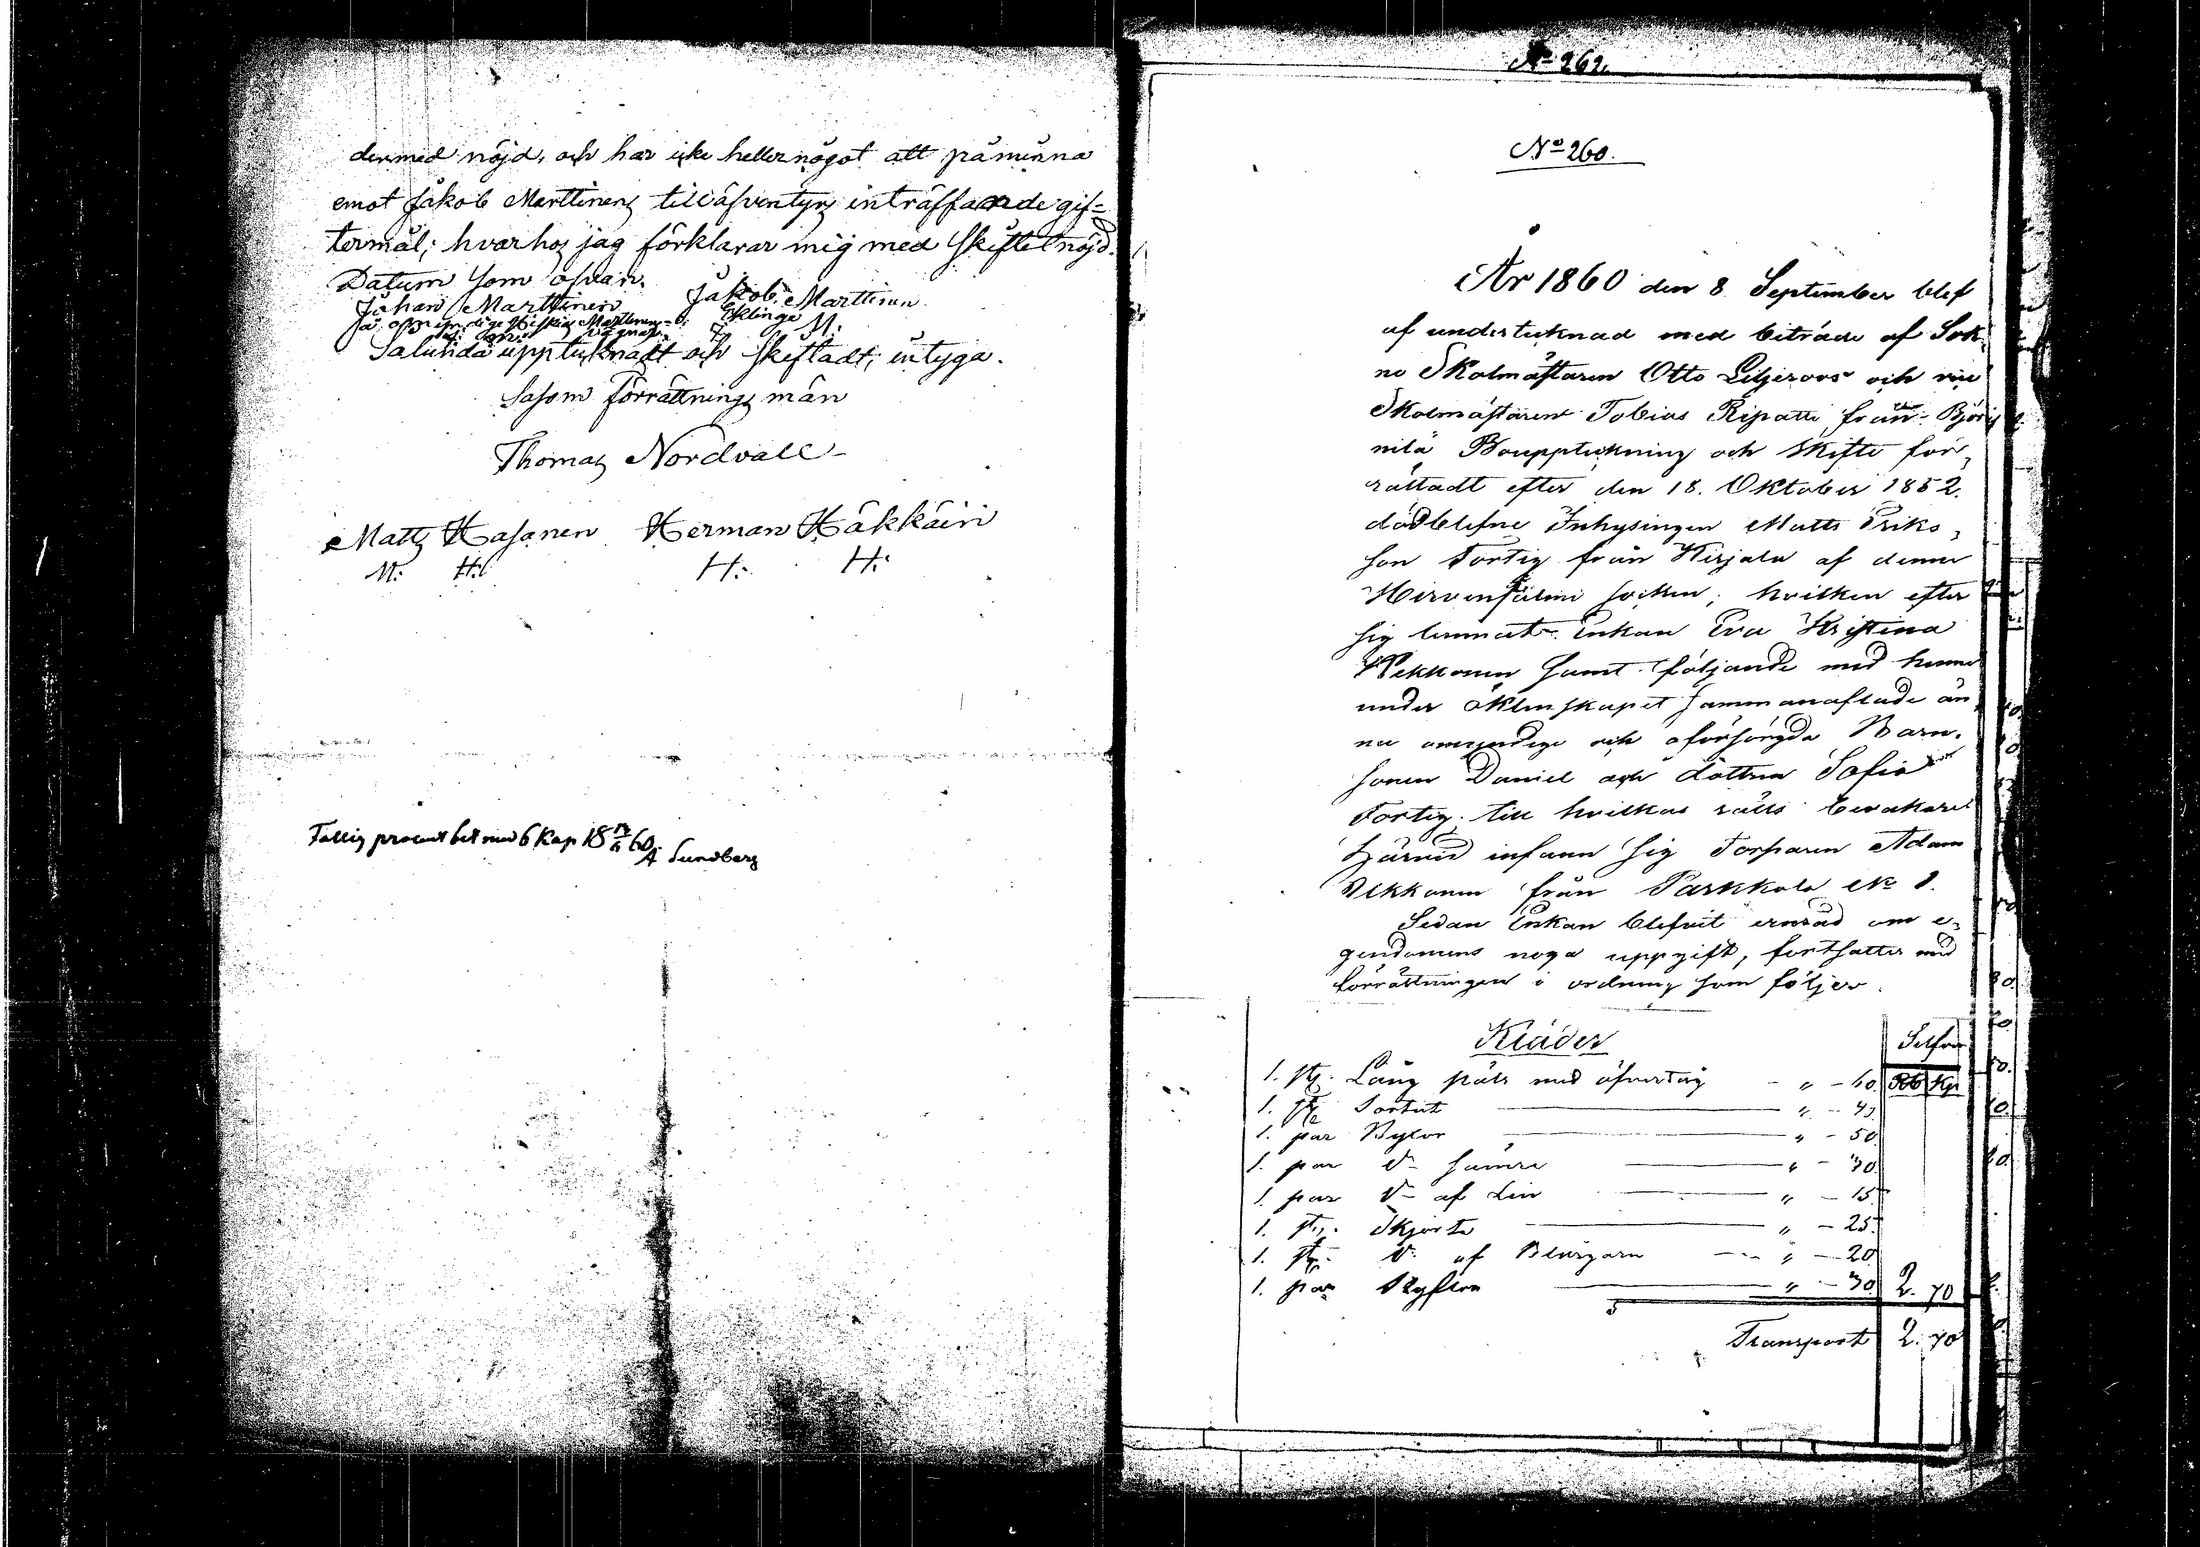 dermed nöjd, och har icke heller något att påminna
emot Jakob Marttinens tilläfventyrs inträffande gif=
termål; hvarhos jag förklarar mig med skiftet nöjd.
Datum som ofvan.
Johan Marttinen Jakob Marttinen
M.
Sålunda upptecknadt och skiftadt; intyga.
Såsom Förrättnings män
Thomas Nordvall
Matts Hasanen Herman Häkkäin
M: H: H: H:
Fattig procent bet med 6 Kap 18 60.
A Sundberg
No 262.
No 260.
År 1860 den 8 September blef
af undertecknad med biträde af Sok
ne Skolmästaren Otto Liljeroos och vice
Skolmästaren Tobias Ripatti från Björn
nilä Bouppteckning och skifte för,
rättadt efter den 18. Oktober 1852.
dödblefne Inhysingen Matts Eriks,
son Tortig från Kirjala af denne
Hirvensalmi socken, hvilken efter
sig lemnat Enkan Eva Kristina
Vekkonen samt följande med henne
under äktenskapet sammanaflade än
nu omyndige och oförsörgda Barn.
sonen Daniel och dottren Sofia
Tortig. till hvilkas rätts bevakare
härvid infann sig Torparen Adam
Vekkonen från Parkkola No 1.
Sedan Enkan blifvit ernrad om e-
gendomens noga uppgift, fortsattes med
förrättningen i ordning som följer.
Kläder
Silfver
1. st. Lång päls med öfvertag " - 60 Rb Kp
1. st. Sortut " - 40
1. par Byxor " - 50
1. par D- sämre " - 30
1. par D- af Lin " - 15
1. st. Skjorta " - 25
1. st. D: af Blångarn " - 20
1. par Styflon " - 30 2. 70
Transport 2. 70